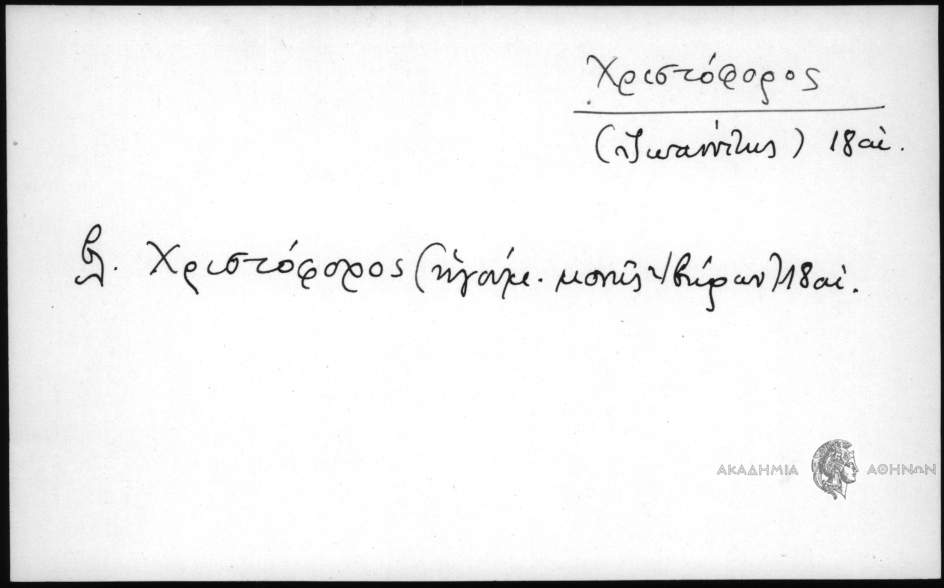 Χριστόφορος
(Ἰωαννίτης) 18 αἰ.
βλ. Χριστόφορος (ἡγούμ. μονῆς Ἰβήρων) 18 αἰ.
ΑΚΑΔΗΜΙΑ ΑΘΗΝΩΝ